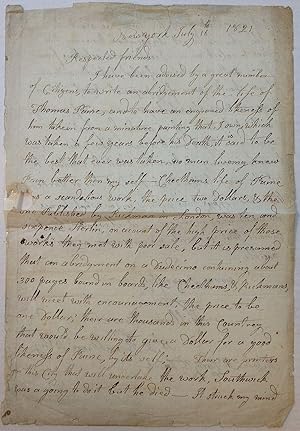 New York July 16th 1821
Respected friend
I have been advised by a great number
of Citizens, to write an abridgement of the life of
Thomas Paine, and to have an engraved likeness of
him taken from a miniature painting that I own, which
was taken a few years before his Death, it said to be
the best that ever was taken, no man living knew
him better than my self – Cheethams life of Paine
is a scandalous work, the price two dollars, & the
one Published by Rickman London was ten and
sixpence Sterlin, on account of the high price of those
works they met with poor sale, but it is presumed
that an abridgment on a Duodecimo containing about
300 pages bound in boards, like Cheethams & Rickmans,
will meet with encouragement, the price to be
one Dollar; there are thousands in this Country
that would be willing to give a dollar for a good
likeness of Paine, by its self; – Your are printers
in this City that will undertake the work, Southwick
was a going to do it but he died – It struck my mind